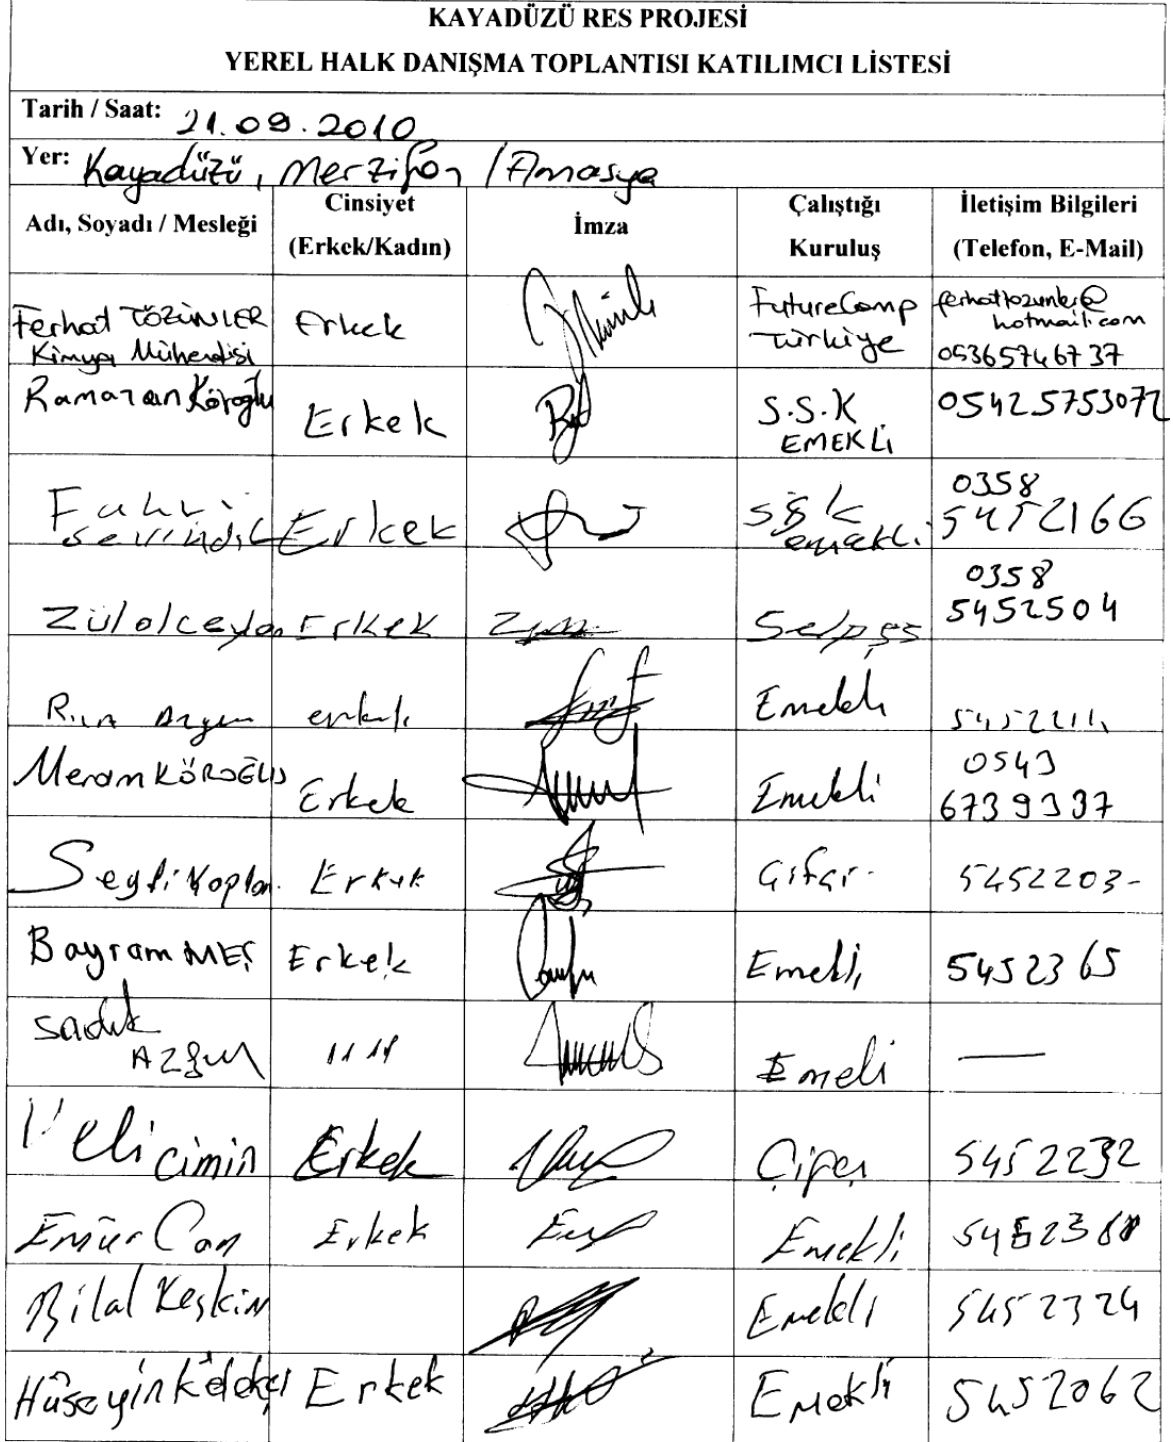 KAYADÜZÜ RES PROJESİ
YEREL HALK DANIŞMA TOPLANTISI KATILIMCI LİSTESİ
Tarih / Saat: 21.09.2010
Yer: Kayadüzü, Merzifon / Amasya
Adı, Soyadı / Mesleği
Cinsiyet
(Erkek/Kadın)
İmza
Çalıştığı
Kuruluş
İletişim Bilgileri
(Telefon, E-Mail)
Ferhat TÖZÜNLER
Kimya Mühendisi
Erkek
FutureCamp
Türkiye
hotmail.com
05365746737
Ramazan Köroğlu
Erkek
S.S.K
EMEKLİ
05425753072
Erkek
emekli
0358
5452166
Erkek
0358
5452504
Emekli
Meram KÖROĞLU
Erkek
Emekli
0543
6739337
Seyfi Koplan
Erkek
5452203-
Bayram MEŞ
Erkek
Emekli
5452365
Sadık
AZgun
11 11
Emeli
Veli cimin
Erkek
5452232
Can
Erkek
Emekli
Bilal Keskin
Emekli
5452324
Hüseyin
Erkek
Emekli
5452062